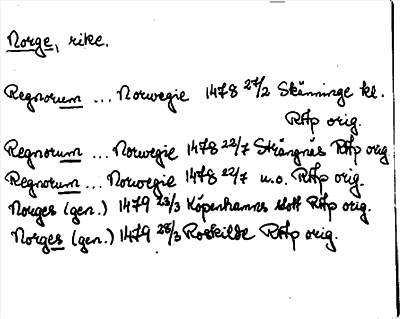 Norge, rike.
Regnorum ... Norwegie 1478 27/2 Skänninge kl.
RAp orig.
Regnorum ... Norwegie 1478 22/7 Strängnäs RAp orig
Regnorum ... Norwegie 1478 22/7 u.o. RAp orig.
Norges (gen.) 1479 23/3 Köpenhamns slott RAp orig.
Norges (gen.) 1479 28/3 Roskilde RAp orig.